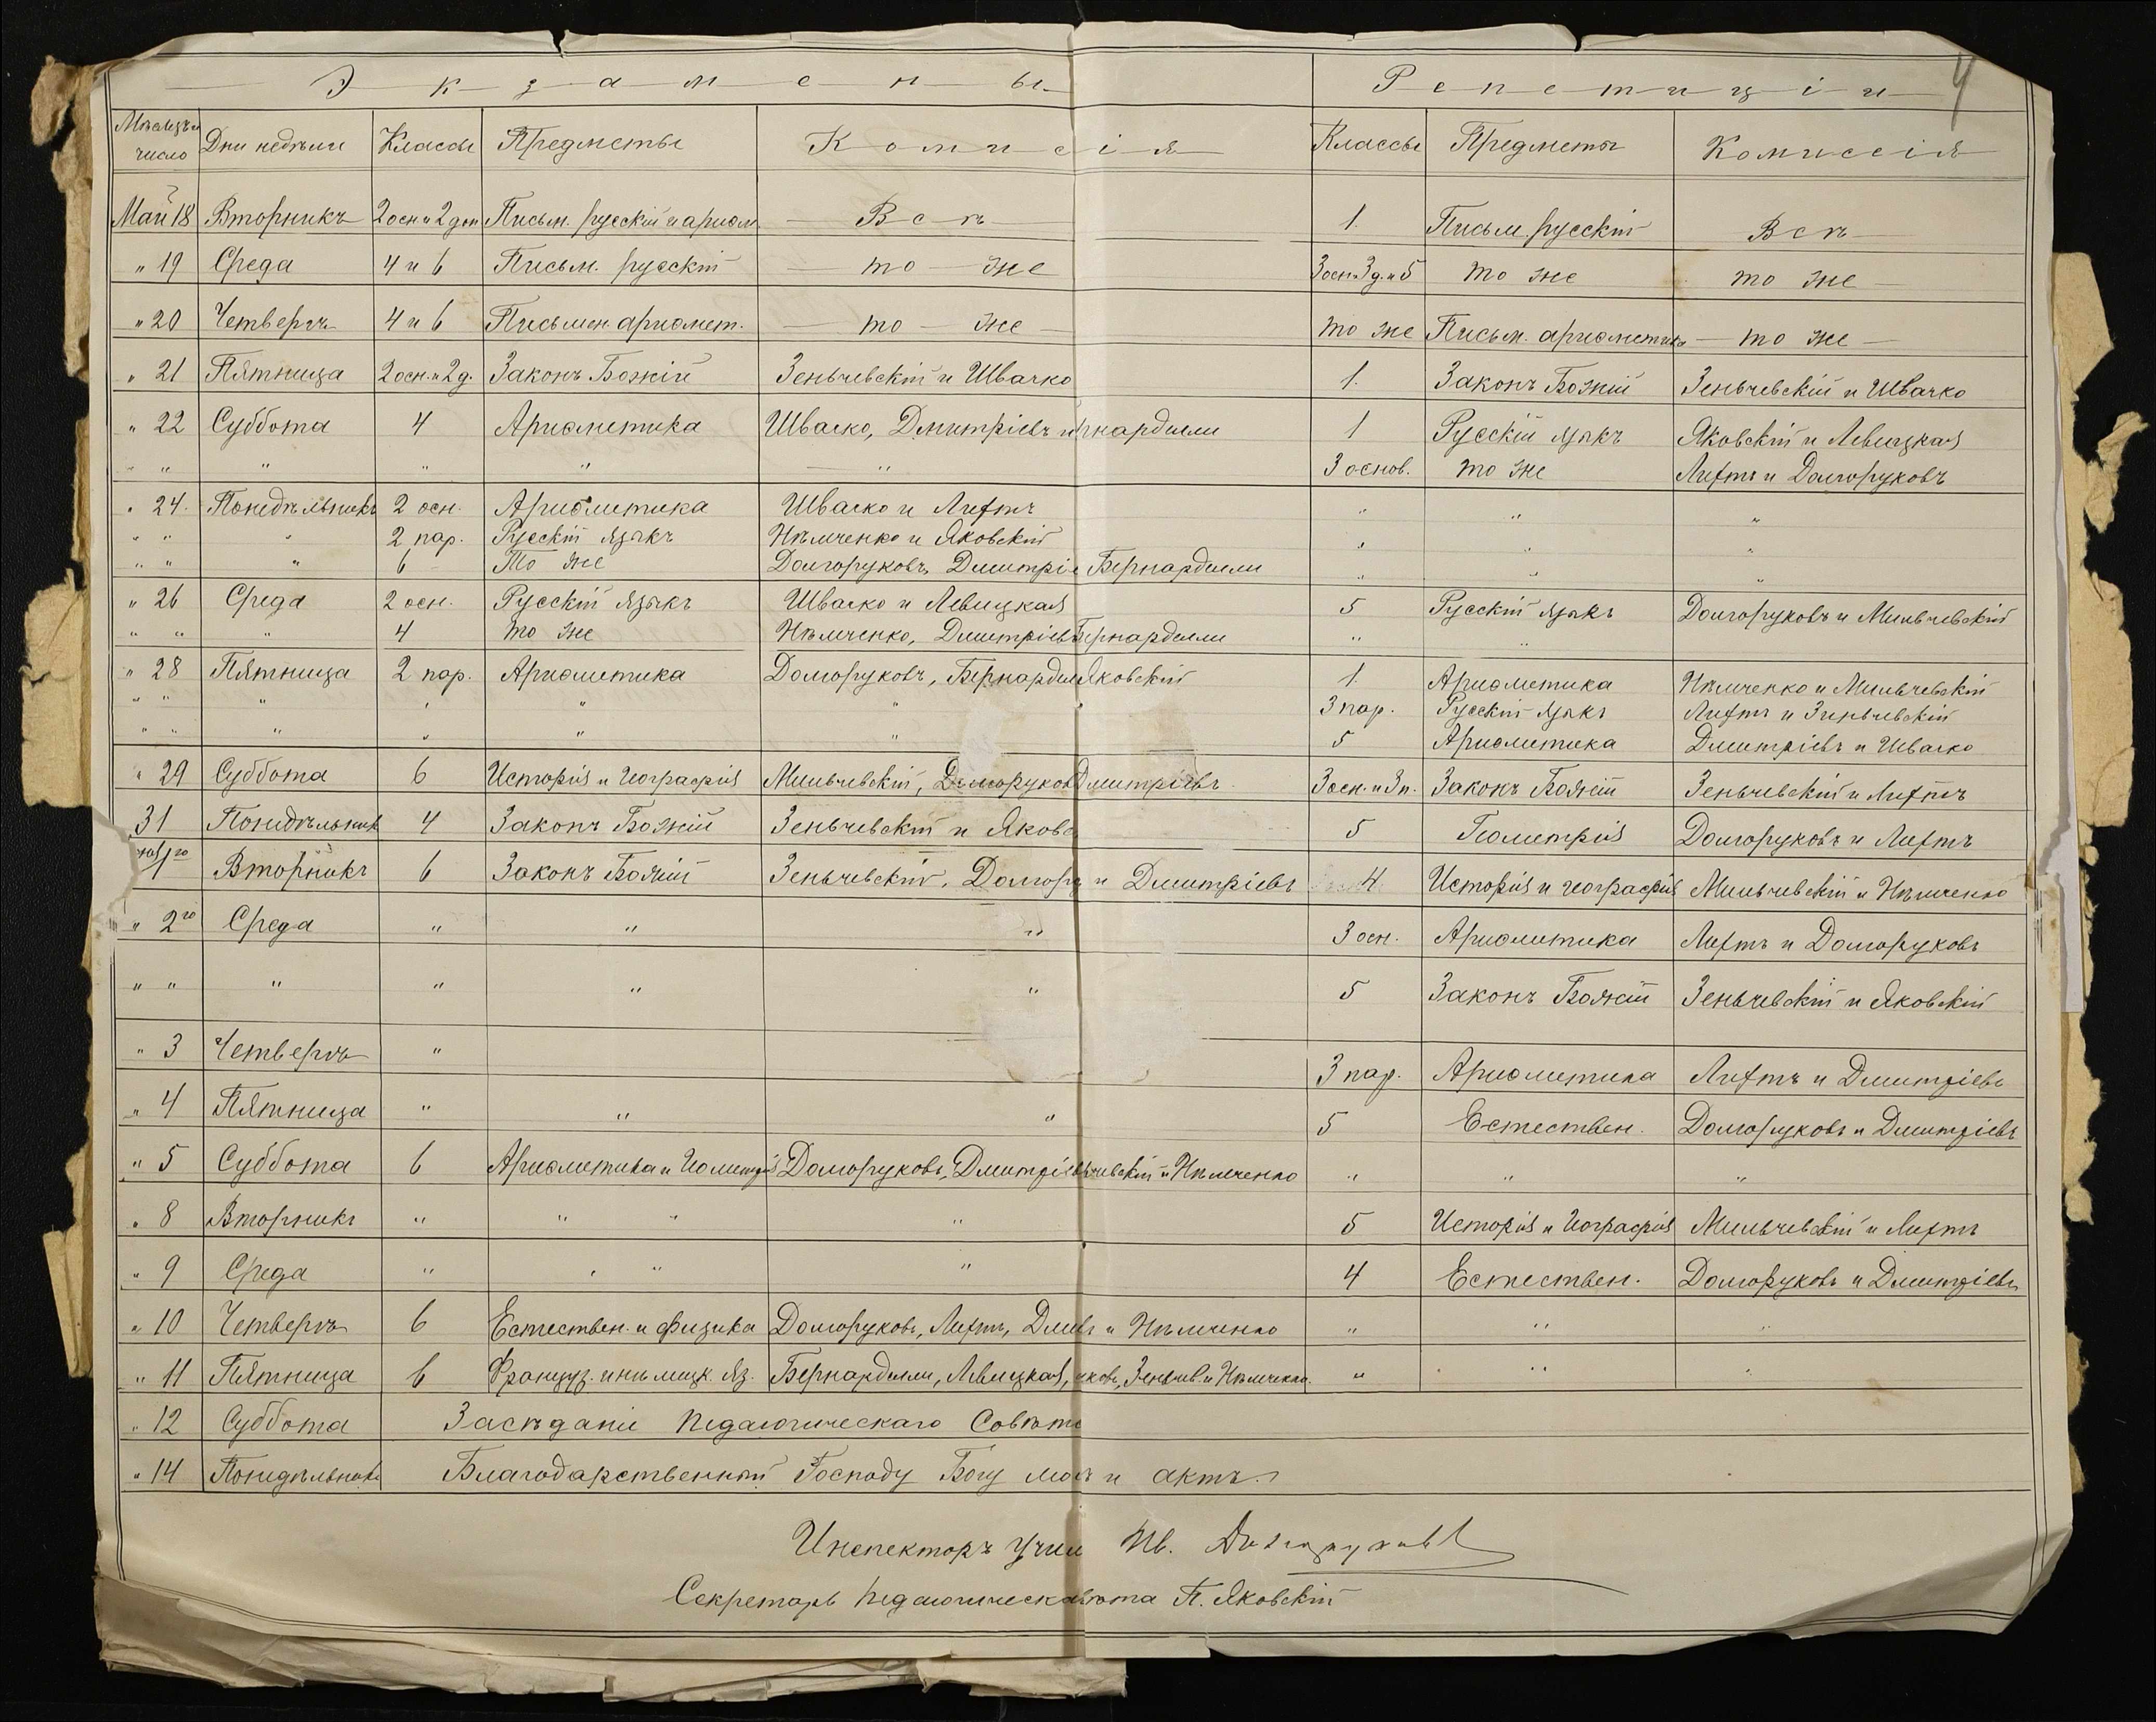 4
Экзамены Репетиціи
Мѣсяцъ и число Дни недѣли Классы Предметы Комисія Классы Предметы Комиссія
Май 18 Вторникъ 2 осн. и 2 доп Письм. русскій и ариѳм. Всѣ 1. Письм. русскій Всѣ
" 19 Среда 4 и 6 Письм. русскій то же 3 осн. 3 д. и 5 то же то же
" 20 Четвергъ 4 и 6 Письмен. ариѳмет. то же то же Письм. ариѳметика то же
" 21 Пятница 2 осн. и 2 д. Законъ Божій Зеньчевскій и Швачко 1. Законъ Божій Зеньчевскій и Швачко
" 22 Суббота 4 Ариѳметика Швачко, Дмитріевъ и рнардели 1 Русскій языкъ Яковскій и Левицкая
" " " " " " 3 основ. то же Лифтъ и Долгоруковъ
" 24. Понедѣльникъ 2 осн. Ариѳметика Швачко и Лифтъ " " "
" " " 2 пар. Русскій языкъ Нѣмченко и Яковскій " " "
" " " 6 То же Долгоруковъ, Дмитріе Бернардели " " "
" 26 Среда 2 осн. Русскій языкъ Швачко и Левицкая 5 Русскій языкъ Долгоруковъ и Мильчевскій
" " " 4 то же Нѣмченко, Дмитріевъ Бернардели " "
" 28 Пятница 2 пар. Ариѳметика Долгоруковъ, Бернардели Яковскій 1. Ариѳметика Нѣмченко и Мильчевскій
" " " " " " 3 пар. Русскій языкъ Лифтъ и Зеньчевскій
" " " " " " 5 Ариѳметика Дмитріевъ и Швачко
" 29 Суббота 6 Исторія и географія Мильчевскій, Долгоруков Дмитріевъ 3 осн. и 3 п. Законъ Божій Зеньчевскій и Лифтъ
31 Понедѣльник 4 Законъ Божій Зеньчевскій и Яковс 5 Геометрія Долгоруковъ и Лифтъ
1го Вторникъ 6 Законъ Божій Зеньчевскій, Долгору и Дмитріевъ 4 Исторія и географія Мильчевскій и Нѣмченко
" 2го Среда " " " 3 осн. Ариѳметика Лифтъ и Долгоруковъ
" " " " " " 5 Законъ Божій Зеньчевскій и Яковскій
" 3 Четвергъ " 3 пар. Ариѳметика Лифтъ и Дмитріевъ
" 4 Пятница " " " 5 Естествен. Долгоруковъ и Дмитріевъ
" 5 Суббота 6 Ариѳметика и Геометрія Долгоруковъ, Дмитріевъ чевскій и Нѣмченко " " "
" 8 Вторникъ " " " " 5 Исторія и географія Мильчевскій и Лифтъ
" 9 Среда " " " " 4 Естествен. Долгоруковъ и Дмитріевъ
" 10 Четвергъ 6 Естествен. и физика Долгоруковъ, Лифтъ, Дми въ и Нѣмченко " " "
" 11 Пятница 6 Француз. и нѣмецк. яз. Бернардели, Левицкая, ковъ, Зеньчев. и Нѣмченко. " " "
" 12 Суббота Засѣданіе Педагогическаго Совѣта
" 14 Понедѣльникъ Благодарственный Господу Богу мол и актъ.
Инспекторъ учил Ив. Долгоруковъ
Секретарь педагогическа вѣта П. Яковскій